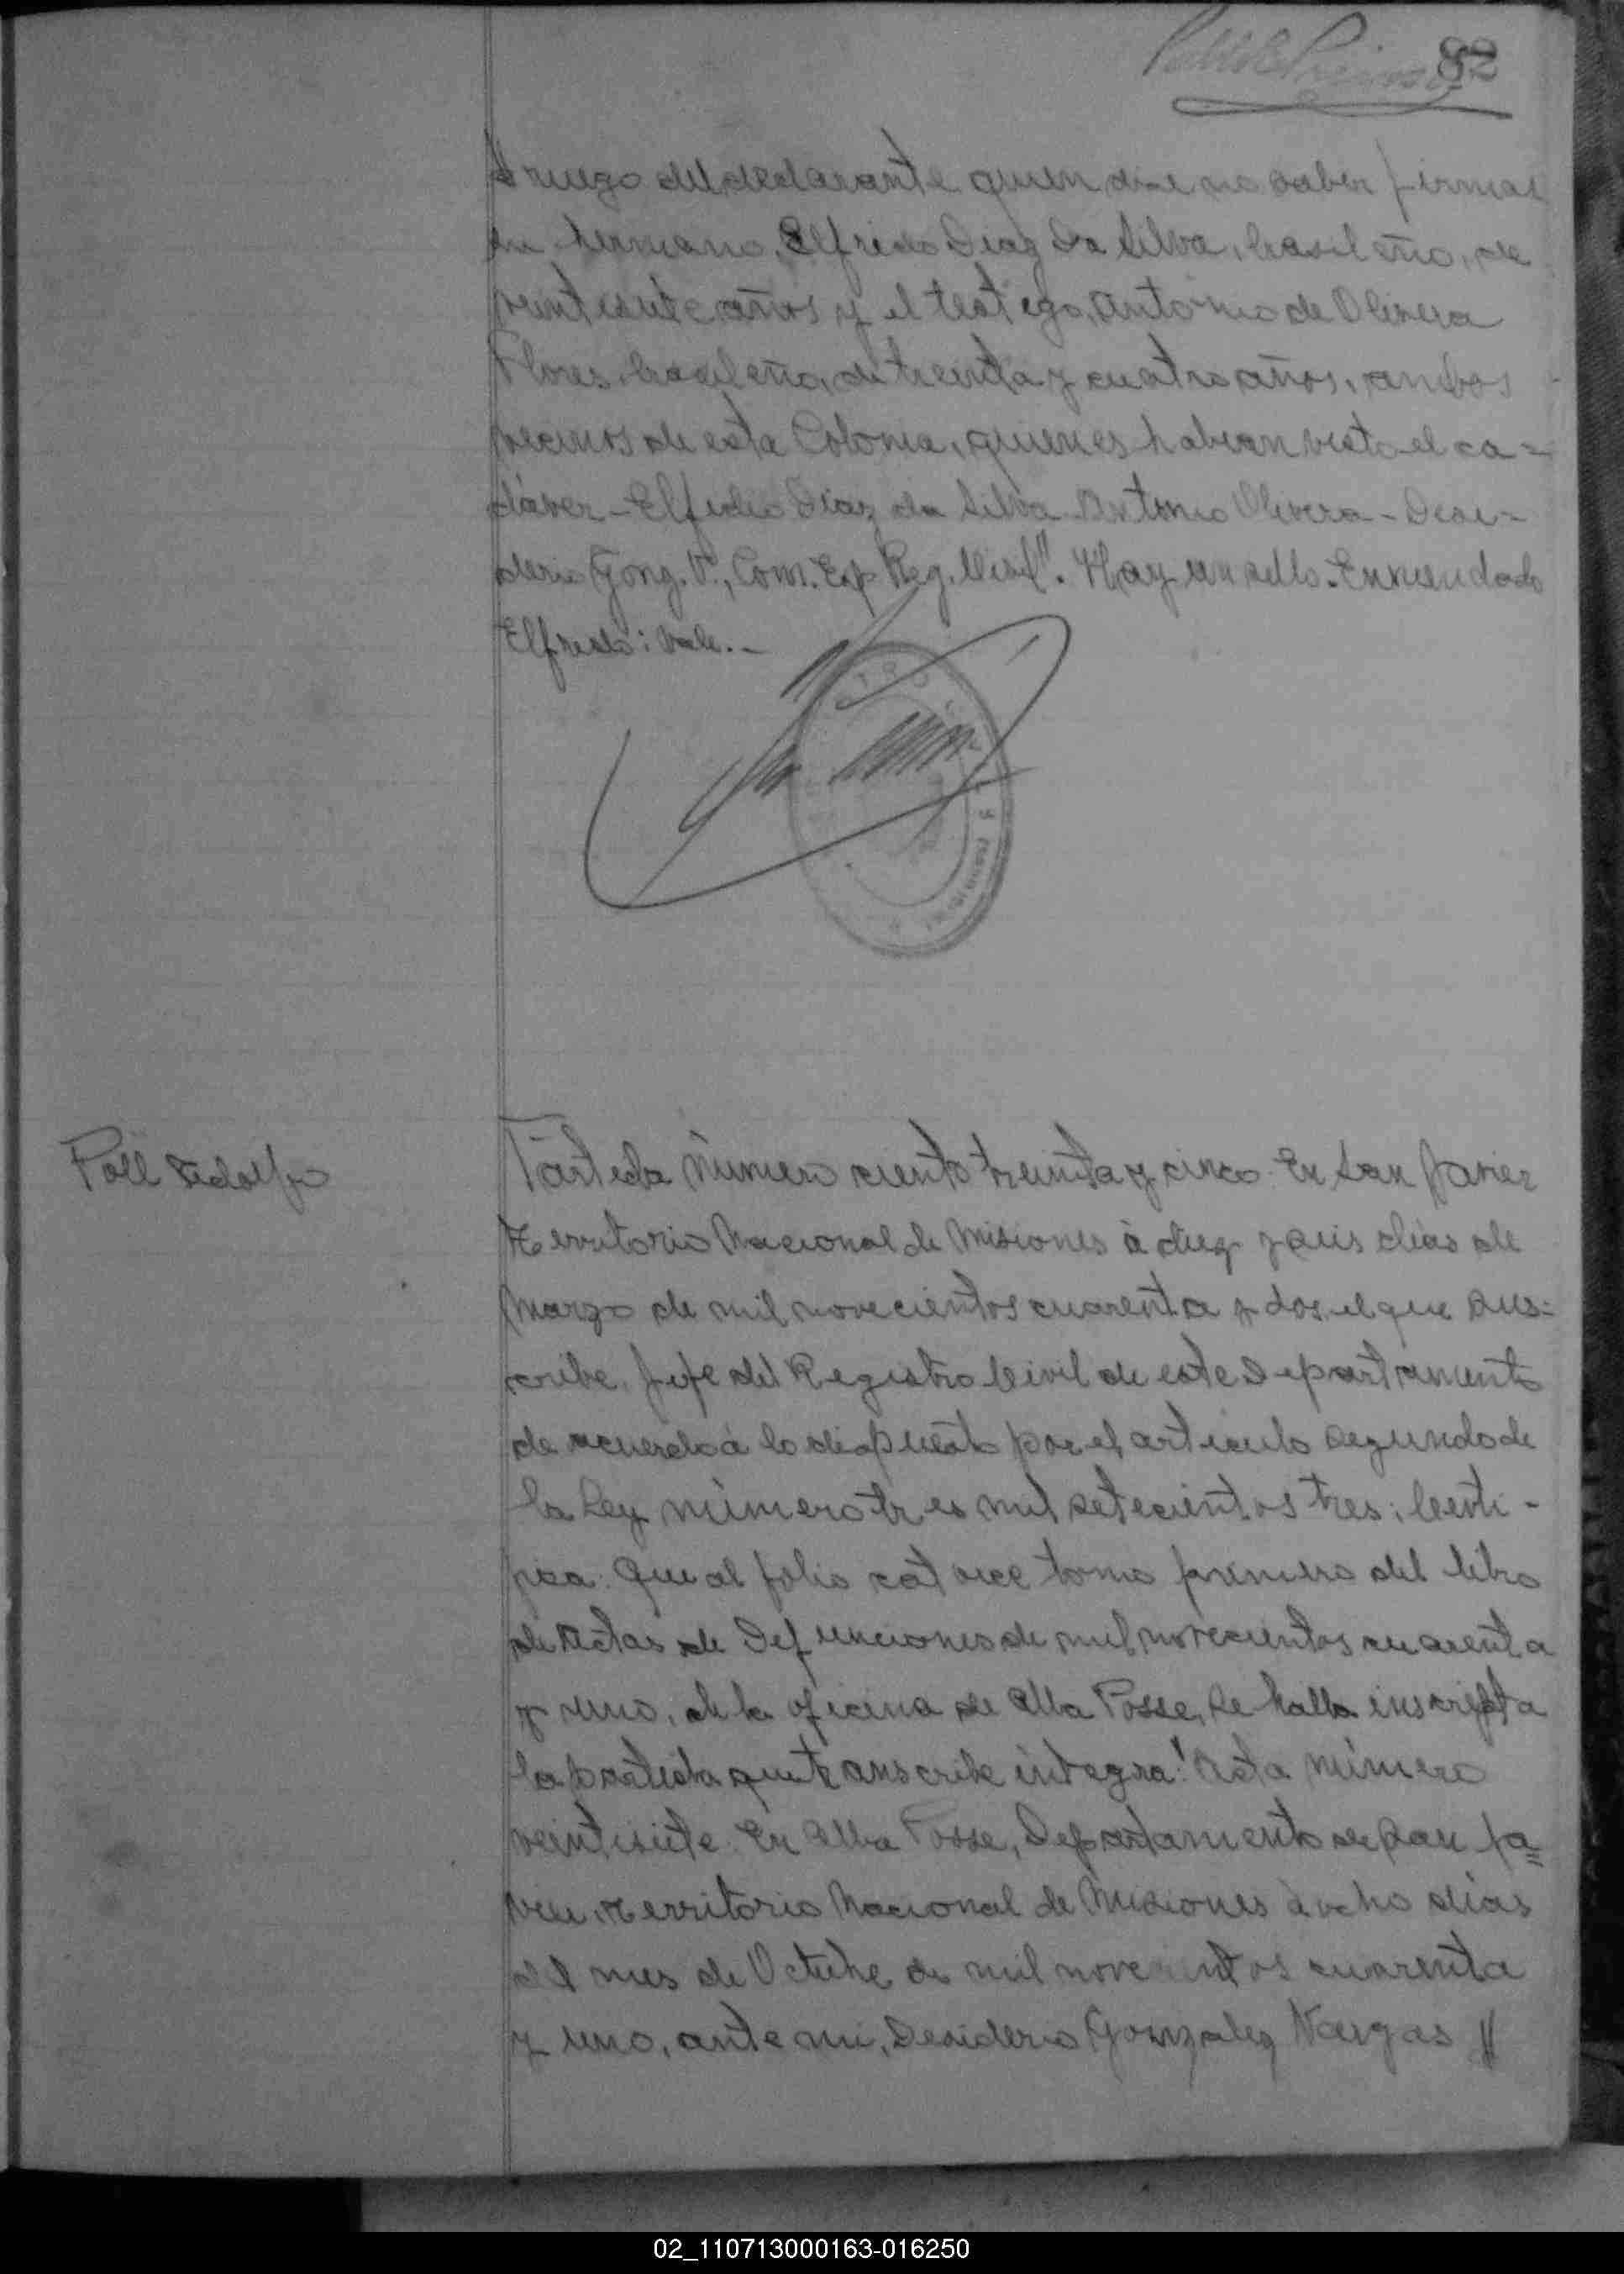 82
A ruego del declarante quien dice no saber firmar
su hermano, Elfredo Diaz Da Silva, brasileño, de
veintisiete años y el testigo, Antonio de Olivera
Flores, brasileño, de treinta y cuatro años, ambos
vecinos de esta Colonia, quienes habian visto el ca=
dáver - Elfidio Díaz da Silva - Antonio Olivera - Desi=
derio Gonz. V., Com. Reg. Civil". Hay un sello. Enmendado
Elfredo: Vale.-
Poll Adolfo
Partida Número ciento treinta y cinco. En San Javier
Territorio Nacional de Misiones à diez y seis dias de
Marzo de mil novecientos cuarenta y dos, el que sus=
cribe, Jefe del Registro Civil de este Departamento
de acuerdo à lo dispuesto por el articulo segundo de
la Ley número tres mil setecientos tres; Certi-
fica: Que al folio catorce tomo primero del libro
de Actas de Defunciones de mil novecientos cuarenta
y uno, de la oficina de Alba Posse, se halla inscripta
la partida que transcribe integra: "Acta número
veintisiete. En Alba Posse, Departamento de San Ja=
vier, Territorio Nacional de Misiones à ocho dias
del mes de Octubre de mil novecientos cuarenta
y uno, ante mi, Desiderio Gonzalez Vargas //
02_110713000163-016250